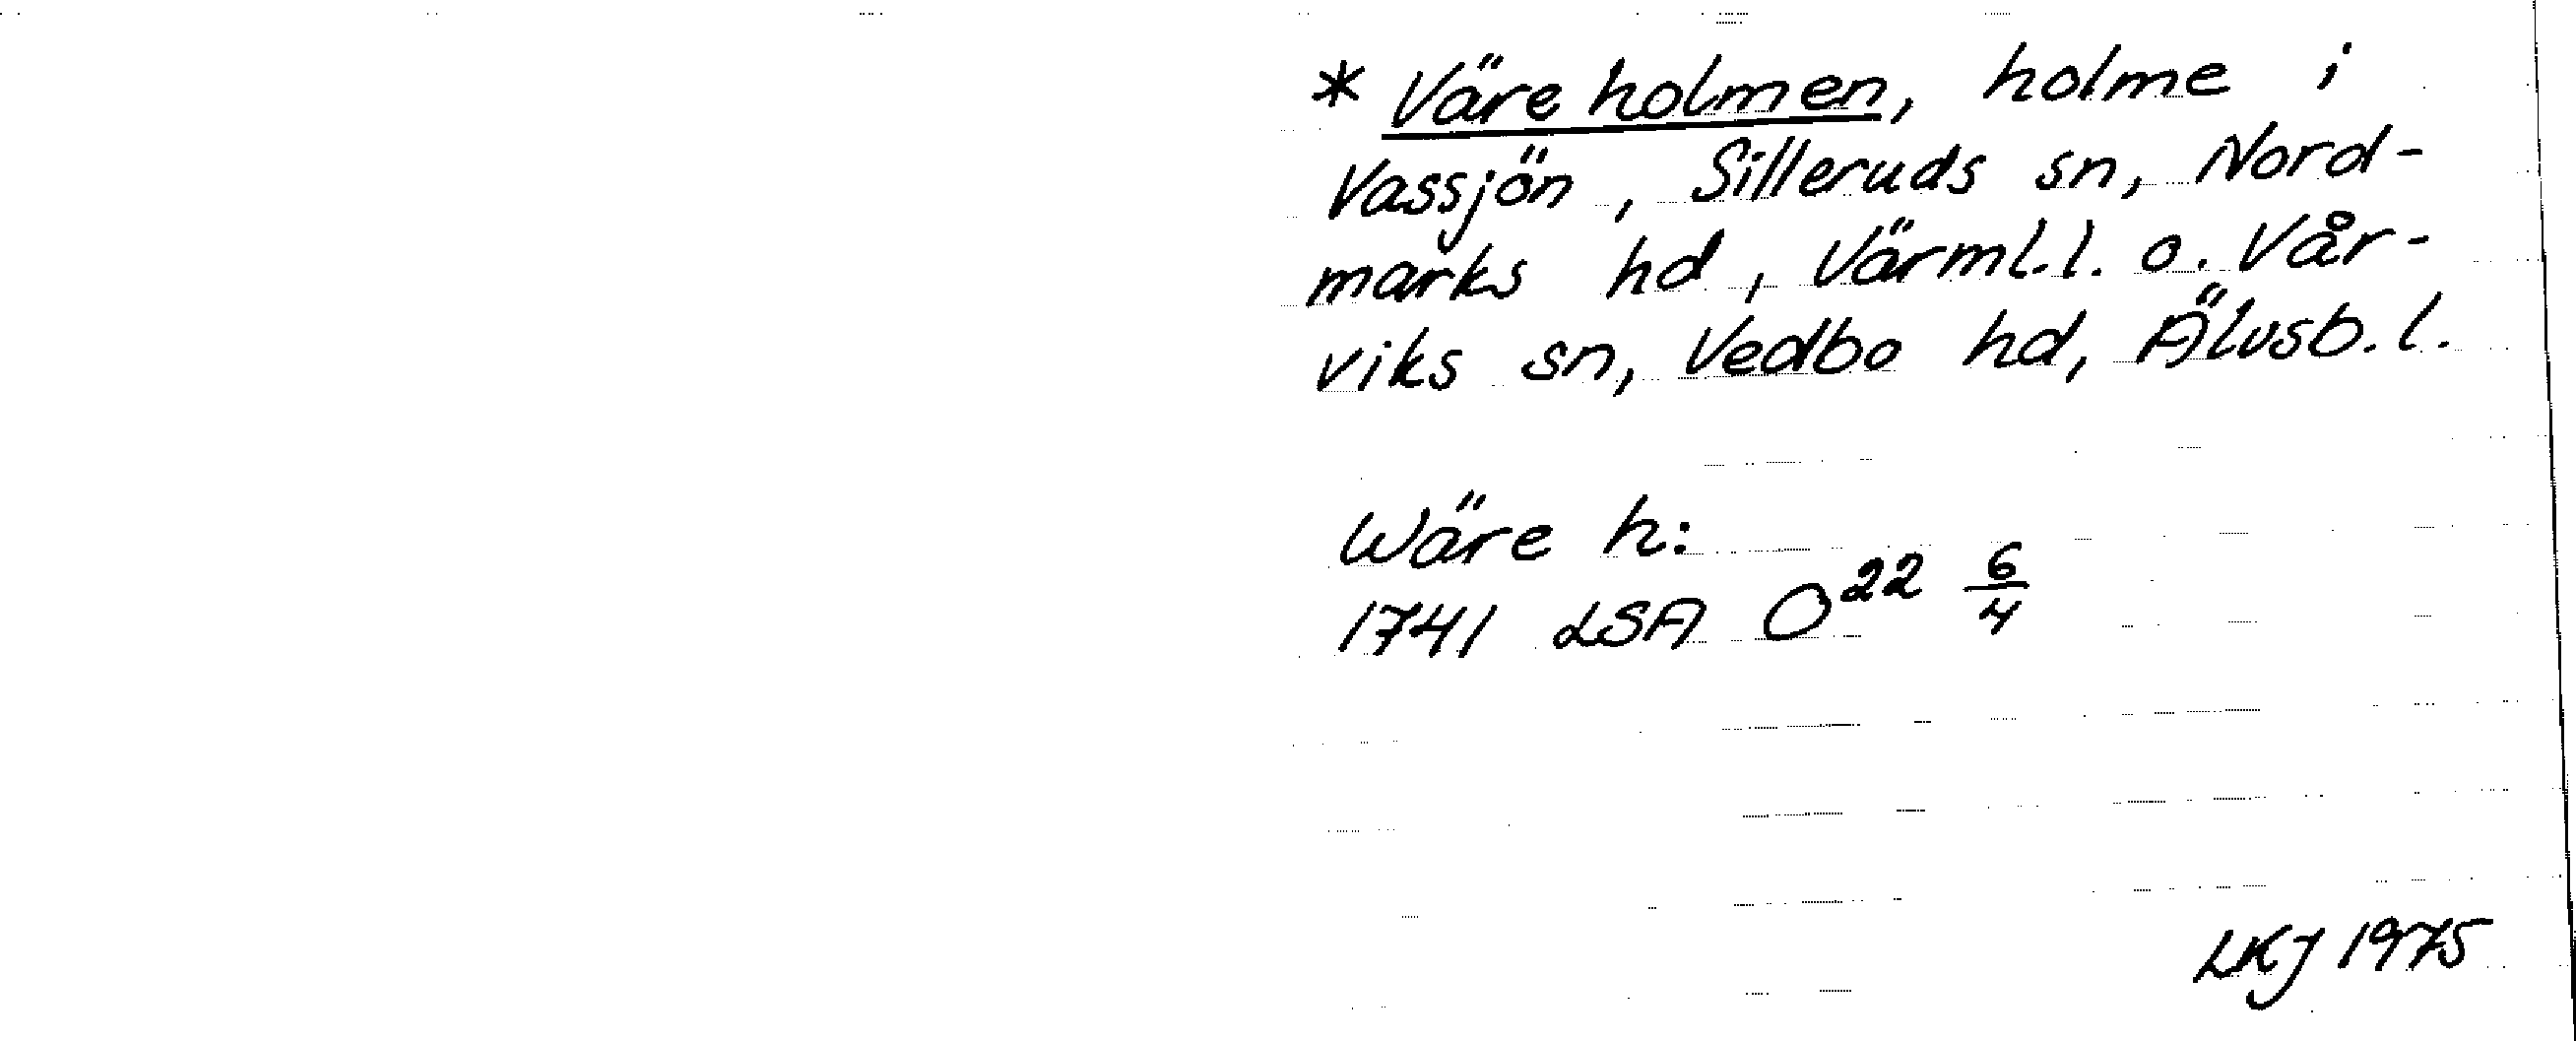 * Väreholmen, holme i
Vassjön, Silleruds sn, Nord-
marks hd, Värml.l. o. Vår-
viks sn, Vedbo hd, Älvsb.l.
Wäre h:
1741 LSA O²² 6/4
LKJ 1975